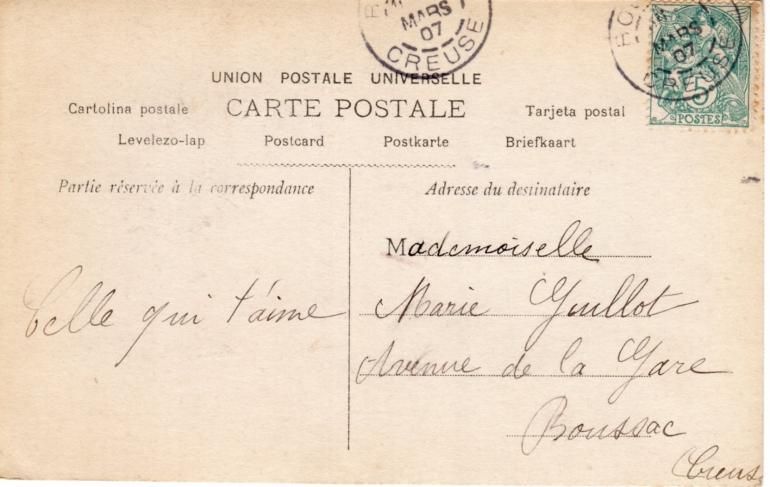 MARS
07
CREUSE
MARS
07
CREUSE
5
POSTES
UNION POSTALE UNIVERSELLE
Cartolina postale CARTE POSTALE Tarjeta postal
Levelezo-lap Postcard Postkarte Briefkaart
Partie réservée à la correspondance
Adresse du destinataire
Celle qui t'aime
Mademoiselle
Marie Guillot
Avenue de la Gare
Boussac
Creus